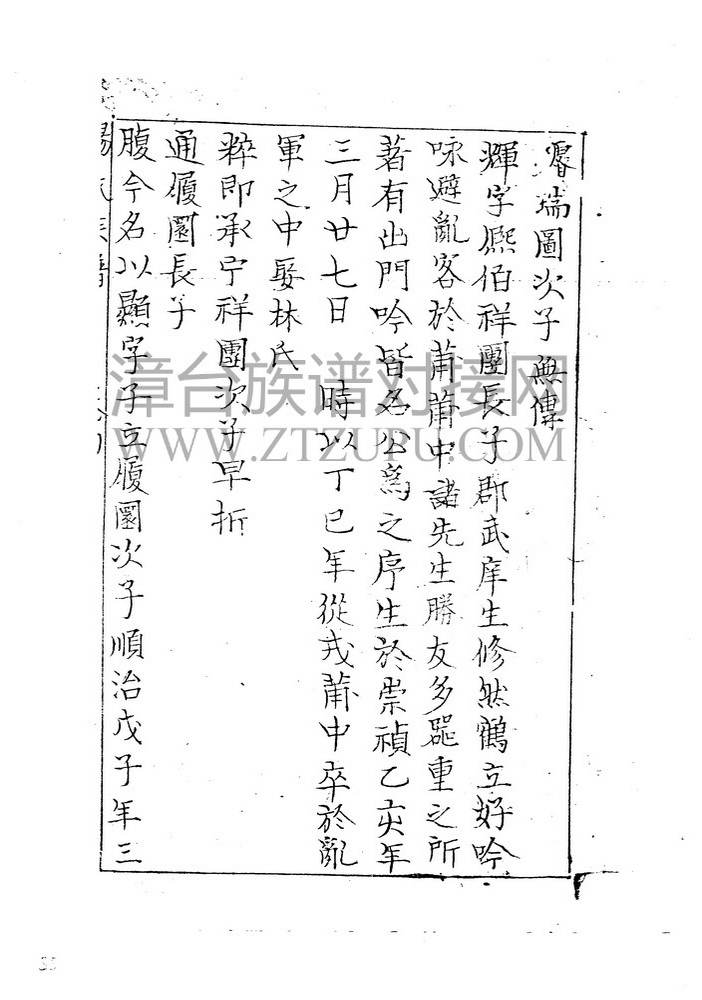 睿瑞圖次子無傳
輝字熈伯祥團長子郡武庠生修然鶴立好吟
咏避亂客於莆莆中諸先生勝友多器重之所
著有出門吟皆名公為之序生於崇禎乙亥年
三月廿七日　時以丁巳年從戎莆中卒於亂
軍之中娶林氏
粹即承宁祥團次子早折
通履園長子
腹今名以顯字子立履園次子順治戊子年三
漳台族谱对接网
WWW.ZTZUPU.COM